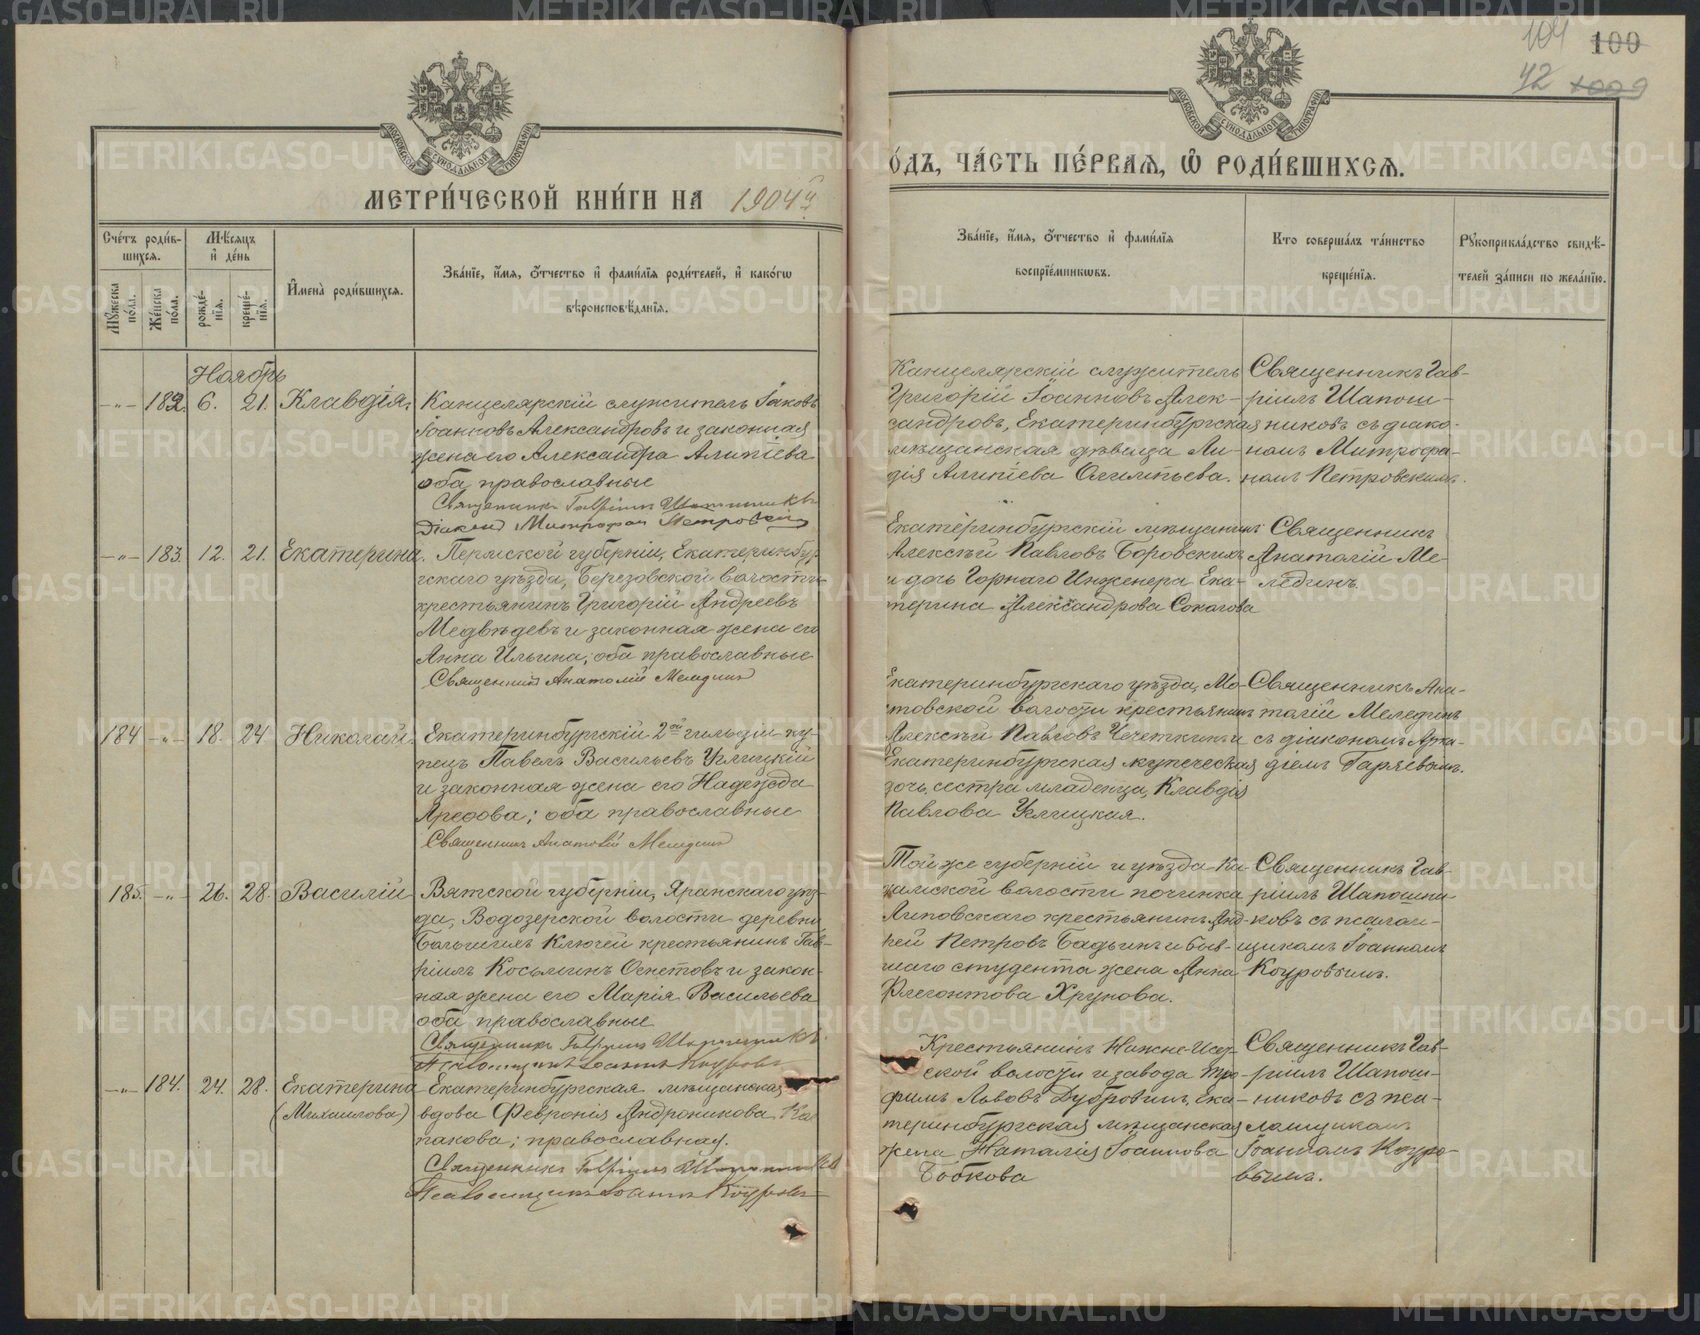 104 100
42 1009
МОСКОВСКОЙ СѴНОДАЛЬНОЙ ТИПОГРАФІИ
МОСКОВСКОЙ СѴНОДАЛЬНОЙ ТИПОГРАФІИ
МЕТРИ́ЧЕСКОЙ КНИ́ГИ НА 1904 й
ОДЪ, ЧА́СТЬ ПЕ́РВАѦ, Ѡ҆ РОДИ́ВШИХСѦ.
Сче́тъ роди́в-
шихсѧ.
Мꙋ́жеска по́ла.
Же́нска по́ла.
Мѣ́сѧцъ и҆ де́нь
рожде́-
нїѧ.
креще́-
нїѧ.
И҆мена̀ роди́вшихсѧ.
Зва́нїе, и҆́мѧ, ѻ҆́тчество и҆ фами́лїѧ роди́телей, и҆ како́гѡ
вѣроисповѣ́данїѧ.
Зва́нїе, и҆́мѧ, ѻ҆́тчество и҆ фами́лїѧ
воспрїе́мникѡвъ.
Кто̀ соверша́лъ та́инство
креще́нїѧ.
Рꙋкоприкла́дство свидѣ́-
телей за́писи по жела́нїю.
Ноябрь
-"- 182. 6. 21. Клавдія.
Канцелярскій служитель Іаковъ
Іоанновъ Александровъ и законная
жена его Александра Алипіева
оба православные
Священникъ Гавріилъ Шапошниковъ
Діаконъ Митрофанъ Петровскій
Канцелярскій служитель
Григорій Іоанновъ Алек-
сандровъ, Екатеринбургская
мѣщанская дѣвица Ли-
дія Алипіева
Священникъ Гав-
ріилъ Шапош-
никовъ съ діако-
номъ Митрофа-
номъ Петровскимъ.
-"- 183. 12. 21. Екатерина.
Пермской губерніи, Екатеринбур-
гскаго уѣзда, Березовской волости
крестьянинъ Григорій Андреевъ
Медвѣдевъ и законная жена его
Анна Ильина; оба православные
Священникъ Анатолій Меледин
Екатеринбургскій мѣщанинъ
Алексѣй Павловъ Боровскихъ
и дочь Горнаго Инженера Ека-
терина Александрова
Священникъ
Анатолій Ме-
лединъ.
184 -"- 18. 24 Николай.
Екатеринбургскій 2ой гильдіи ку-
пецъ Павелъ Васильевъ Углицкій
и законная жена его Надежда
Арефова; оба православные
Священникъ Анатолій Меледин
Екатеринбургскаго уѣзда, Мо-
стовской волости крестьянинъ
Алексѣй Павловъ Чечеткинъ и
Екатеринбургская купеческая
дочь, сестра младенца, Клавдія
Павлова Углицкая.
Священникъ Ана-
толій Меледин
съ діакономъ Арка-
діемъ Гаряевымъ.
185. -"- 26. 28. Василій
Вятской губерніи, Яранскаго уѣз-
да, Водозерской волости деревни
Большихъ Ключей крестьянинъ Гав-
ріилъ Косьминъ и закон-
ная жена его Марія Васильева
оба православные
Священникъ Гавріилъ Шапошниковъ
Псаломщикъ Іоаннъ Коуровъ
Той же губерніи и уѣзда
волости починка
Липовскаго крестьянинъ Анд-
рей Петровъ и быв-
шаго студента жена Анна
Флегонтова Хрунова.
Священникъ Гав-
ріилъ Шапошни-
ковъ съ псалом-
щикомъ Іоанномъ
Коуровымъ.
-"- 184. 24. 28. Екатерина
(Михаилова)
Екатеринбургская мѣщанская
вдова Февронія Андроникова
православная.
Священникъ Гавріилъ Шапошниковъ
Псаломщикъ Іоаннъ Коуровъ
Крестьянинъ Нижне-Исет-
ской волости и завода Тро-
фимъ Львовъ Дубровинъ, Ека-
теринбургская мѣщанская
жена Наталія Іоаннова
Бобкова
Священникъ Гав-
ріилъ Шапош-
никовъ съ пса-
ломщикомъ
Іоанномъ Коуро-
вымъ.
METRIKI.GASO-URAL.RU